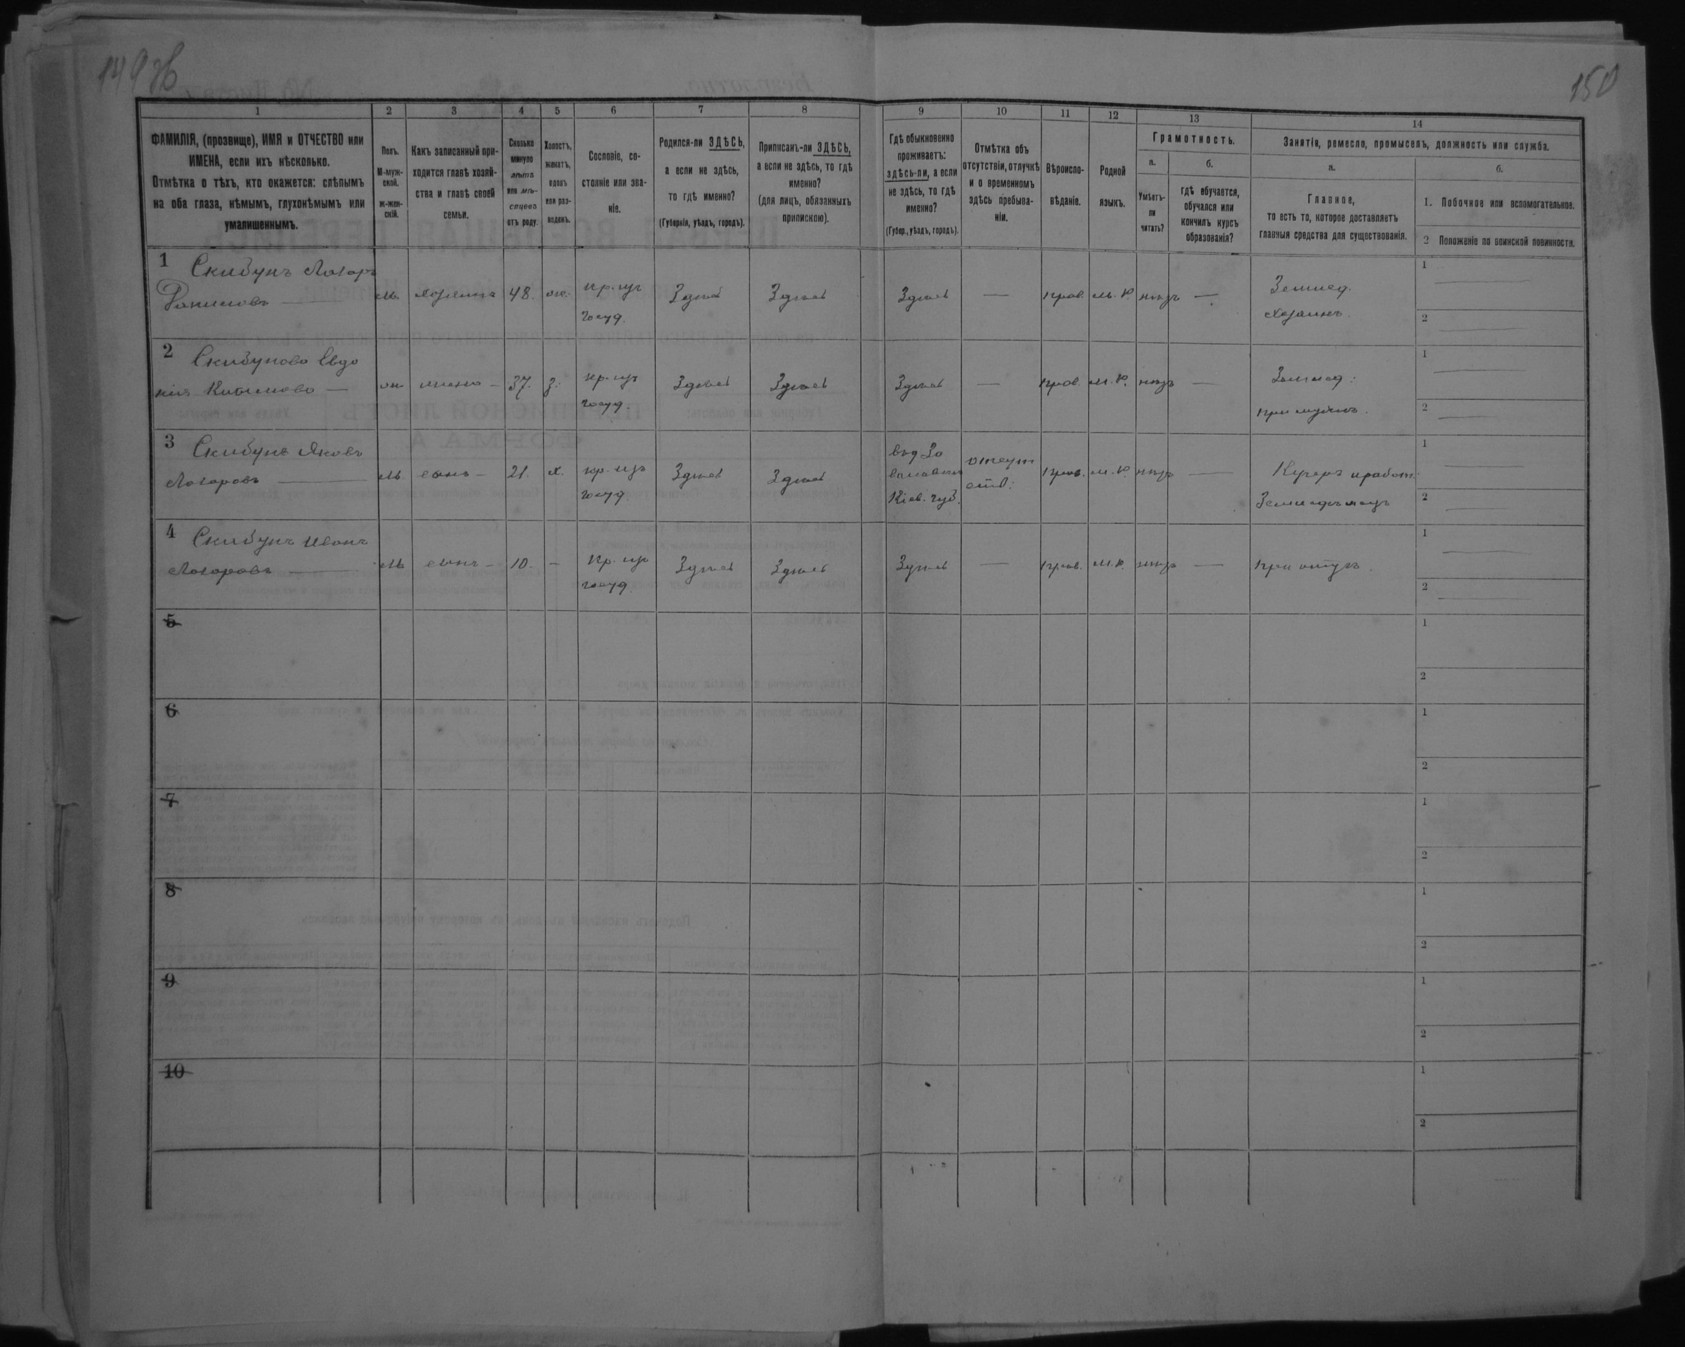 149 об
150
1
2
3
4
5
6
7
8
9
10
11
12
13
14
ФАМИЛІЯ, (прозвище), ИМЯ и ОТЧЕСТВО или
ИМЕНА, если ихъ нѣсколько.
Отмѣтка о тѣхъ, кто окажется: слѣпымъ
на оба глаза, нѣмымъ, глухонѣмымъ или
умалишеннымъ.
Полъ.
М-муж-
ской.
ж-жен-
скій.
Какъ записанный при-
ходится главѣ хозяй-
ства и главѣ своей
семьи.
Сколько
минуло
лѣтъ
или мѣ-
сяцевъ
отъ роду.
Холостъ,
женатъ,
вдовъ
или раз-
веденъ.
Сословіе, со-
стояніе или зва-
ніе.
Родился-ли ЗДѢСЬ,
а если не здѣсь,
то гдѣ именно?
(Губернія, уѣздъ, городъ).
Приписанъ-ли ЗДѢСЬ,
а если не здѣсь, то гдѣ
именно?
(для лицъ, обязанныхъ
припискою).
Гдѣ обыкновенно
проживаетъ:
здѣсь-ли, а если
не здѣсь, то гдѣ
именно?
(Губер., уѣздъ, городъ).
Отмѣтка объ
отсутствіи, отлучкѣ
и о временномъ
здѣсь пребыва-
ніи.
Вѣроиспо-
вѣданіе.
Родной
языкъ.
Грамотность.
а.
Умѣетъ-
ли
читать?
б.
гдѣ обучается,
обучался или
кончилъ курсъ
образованія?
Занятіе, ремесло, промыселъ, должность или служба.
а.
Главное,
то есть то, которое доставляетъ
главныя средства для существованія.
б.
1. Побочное или вспомогательное.
2 Положеніе по воинской повинности.
1 Скибунъ Лазарь
Даниловъ — м. хозяинъ 48. ж. кр. изъ госуд. Здѣсь Здѣсь Здѣсь — прав. м. р. нѣтъ — Землед. хозяинъ.
1
2
2 Скибунова Евдо
кія — жена 37. з. кр. изъ госуд. Здѣсь Здѣсь Здѣсь — прав. м. р. нѣтъ — Землед. при мужѣ.
1
2
3 Скибунъ Яковъ
Лазаревъ — м. сынъ 21. х. кр. изъ госуд. Здѣсь Здѣсь Кіев. губ. отсут прав. м. р. нѣтъ — Кучеръ
1
2
4 Скибунъ Иванъ
Лазаревъ — м. сынъ 10. — кр. изъ госуд. Здѣсь Здѣсь Здѣсь — прав. м. р. нѣтъ — при отцѣ.
1
2
5
1
2
6
1
2
7
1
2
8
1
2
9
1
2
10
1
2